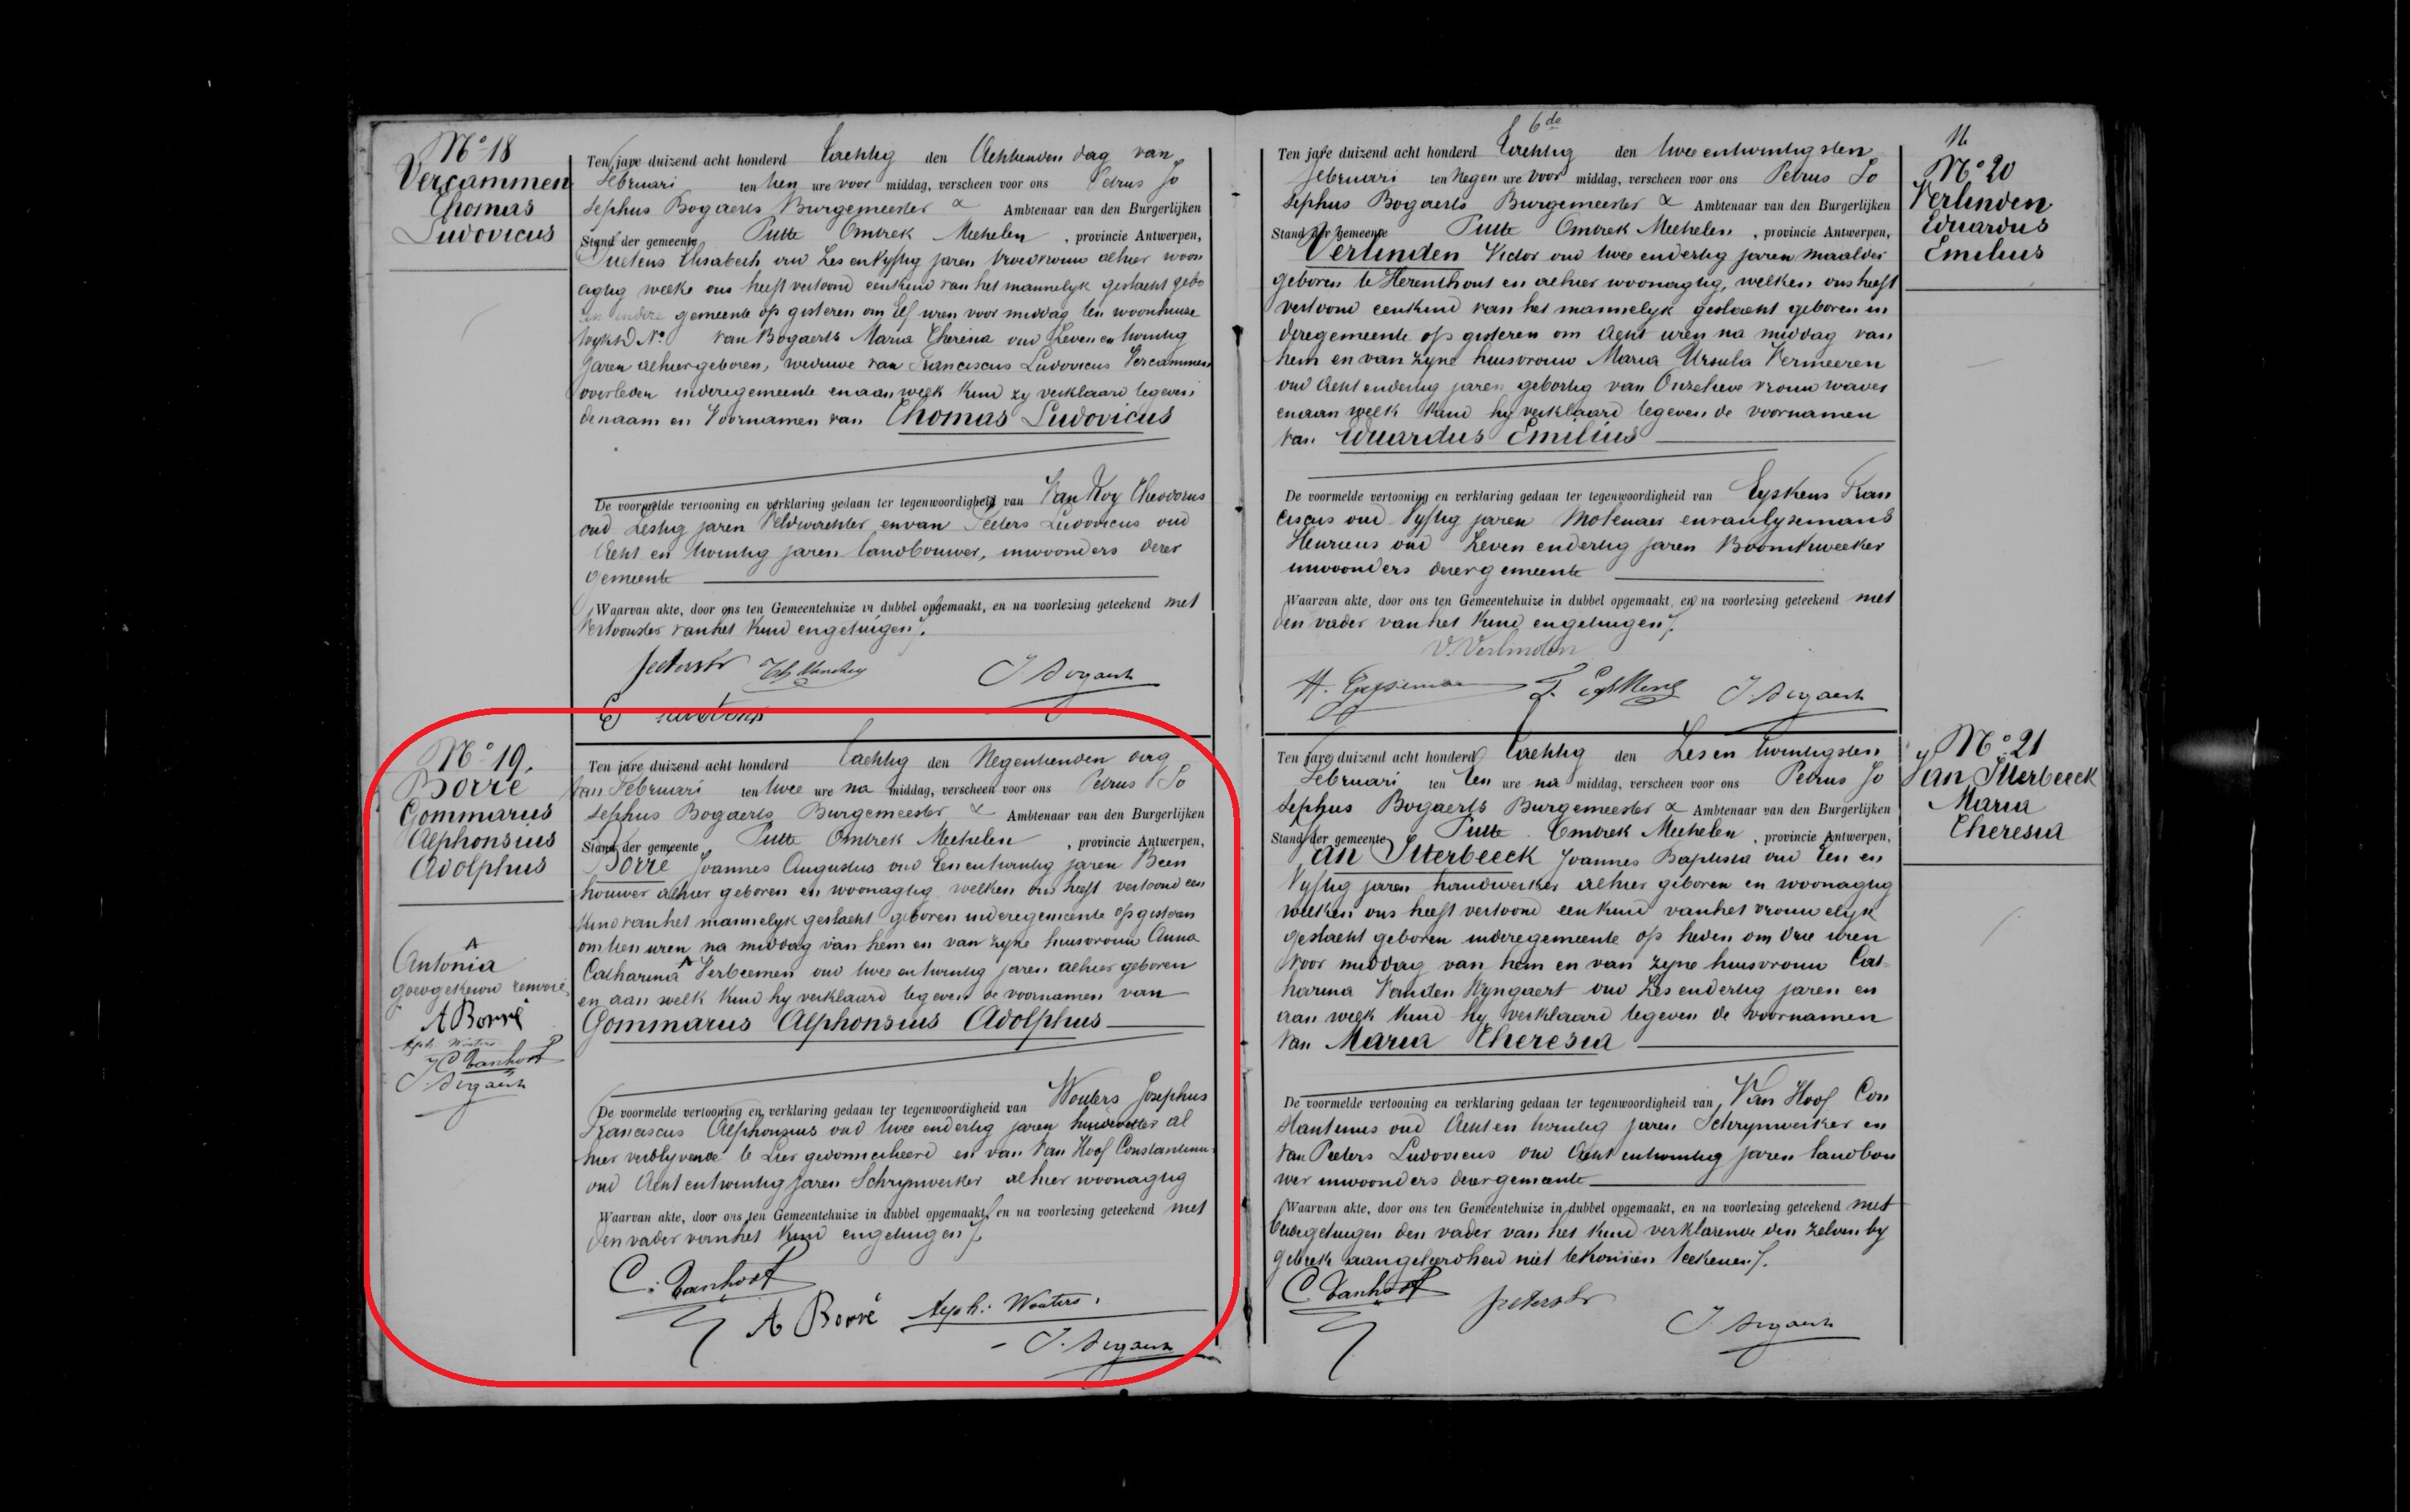 Nº 18
Vercammen
Thomas
Ludovicus
Ten jare duizend acht honderd tachtig den Achttienden dag van
Februari ten tien ure voor middag, verscheen voor ons Petrus Jo
sephus Bogaerts Burgemeester & Ambtenaar van den Burgerlijken
Stand der gemeente Putte Omtrek Mechelen , provincie Antwerpen,
Elisabeth oud Zes en Vyftig jaren Vroedvrouw alhier woon
agtig welke ons heeft vertoond een kind van het mannelyk geslacht gebo
ren in dere gemeente op gisteren om Elf uren voor middag ten woonhuize
Wyk D Nº van Bogaerts Maria Theresia oud Zeven en twintig
Jaren alhier geboren, weduwe van Franciscus Ludovicus Vercammen
overleden inderegemeente en aan welk kind zy verklaard tegeven
denaam en Voornamen van Thomas Ludovicus
De voormelde vertooning en verklaring gedaan ter tegenwoordigheid van Van Roy Theodorus
oud Zestig jaren Veldwachter, en van Peeters Ludovicus oud
Acht en twintig jaren landbouwer, inwoonders dezer
gemeente
Waarvan akte, door ons ten Gemeentehuize in dubbel opgemaakt, en na voorlezing geteekend met
Vertoonster van het Kind en getuigen /.
J Bogaerts
Nº 19.
Borré
Gommarus
Alphonsius
Adolphus
Antonia
goedgekeurd renvooi
A Borré
Alph. Wouters
C Vanhoof
J Bogaerts
Ten jare duizend acht honderd tachtig den Negentienden dag
van Februari ten twee ure na middag, verscheen voor ons Petrus Jo
sephus Bogaerts Burgemeester & Ambtenaar van den Burgerlijken
Stand der gemeente Putte Omtrek Mechelen , provincie Antwerpen,
Borré Joannes Augustus oud Eenentwintig jaren Been
houwer alhier geboren en woonagtig welken ons heeft vertoond een
kind van het mannelyk geslacht geboren inderegemeente op gisteren
om tien uren na middag van hem en van zyne huisvrouw Anna
Catharina ^ Verbeemen oud twee en twintig jaren alhier geboren
en aan welk kind hy verklaard tegeven de voornamen van
Gommarus Alphonsius Adolphus
De voormelde vertooning en verklaring gedaan ter tegenwoordigheid van Wouters Josephus
Franciscus Alphonsius oud twee endertig jaren huidevetter al
hier verblyvende te Lier gedomicilieerd en van Van Hoof Constantinus
oud Acht entwintig jaren Schrynwerker alhier woonagtig
Waarvan akte, door ons ten Gemeentehuize in dubbel opgemaakt, en na voorlezing geteekend met
den vader van het Kind en getuigen /.
C. Vanhoof
A Borré Alph: Wouters.
J. Bogaerts
6de
Ten jare duizend acht honderd Tachtig den twee entwintigsten
februari ten Negen ure voor middag, verscheen voor ons Petrus Jo
sephus Bogaerts Burgemeester & Ambtenaar van den Burgerlijken
Stand der gemeente Putte Omtrek Mechelen , provincie Antwerpen,
Verlinden Victor oud twee endertig jaren maalder
geboren te Herenthout en alhier woonagtig, welken ons heeft
vertoond eenkind van het mannelyk geslacht geboren in
deregemeente op gisteren om Acht uren na middag van
hem en van zyne huisvrouw Maria Ursula Vermeeren
oud Acht endertig jaren geboortig van Onzelieve vrouw waver
enaan welk kind hy verklaard tegeven de voornamen
van Eduardus Emilius
De voormelde vertooning en verklaring gedaan ter tegenwoordigheid van Eyskens Fran
ciscus oud Vyftig jaren Molenaer en van Lysemans
Henricus oud Zeven endertig jaren Boomkweeker
inwoonders dezergemeente
Waarvan akte, door ons ten Gemeentehuize in dubbel opgemaakt, en na voorlezing geteekend met
den vader van het Kind en getuigen /.
V. Verlinden
J. Bogaerts
11
Nº 20
Verlinden
Eduardus
Emilius
Ten jare duizend acht honderd Tachtig den Zes en twintigsten
Februari ten tien ure na middag, verscheen voor ons Petrus Jo
sephus Bogaerts Burgemeester & Ambtenaar van den Burgerlijken
Stand der gemeente Putte Omtrek Mechelen , provincie Antwerpen,
Van Itterbeeck Joannes Baptista oud Een en
Vyftig jaren handwerker alhier geboren en woonagtig
welken ons heeft vertoond eenkind vanhet vrouwelyk
geslacht geboren inderegemeente op heden om drie uren
voor middag van hem en van zyne huisvrouw Cat
harina Vanden Wyngaert oud Zes endertig jaren en
aan welk kind hy verklaard tegeven de voornamen
van Maria Theresia
De voormelde vertooning en verklaring gedaan ter tegenwoordigheid van Van Hoof Con
stantinus oud Achten twintig jaren Schrynwerker en
van Peeters Ludovicus oud Acht entwintig jaren landbou
wer inwoonders dezergemeente
Waarvan akte, door ons ten Gemeentehuize in dubbel opgemaakt, en na voorlezing geteekend met
de getuigen den vader van het Kind verklarende den zelven by
gebrek aangeleerdheid niet tekonnen teekenen /.
C. Vanhoof
J. Bogaerts
Nº 21
Van Itterbeeck
Maria
Theresia